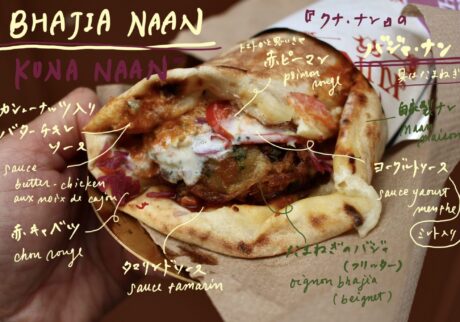 BHAJIA NAAN
KUNA NAAN
『クナ・ナン』の
バジャ・ナン
赤ピーマン
poivron
rouge
カシューナッツ入り
バターチキン
ソース
sauce
butter-chicken
aux noix de cajou
赤キャベツ
chou rouge
タマリンドソース
sauce tamarin
自家製ナン
naan
maison
ヨーグルトソース
sauce yaourt
menthe
ミント入り
たまねぎのバジャ
(フリッター)
oignon bhajia
(beignet)